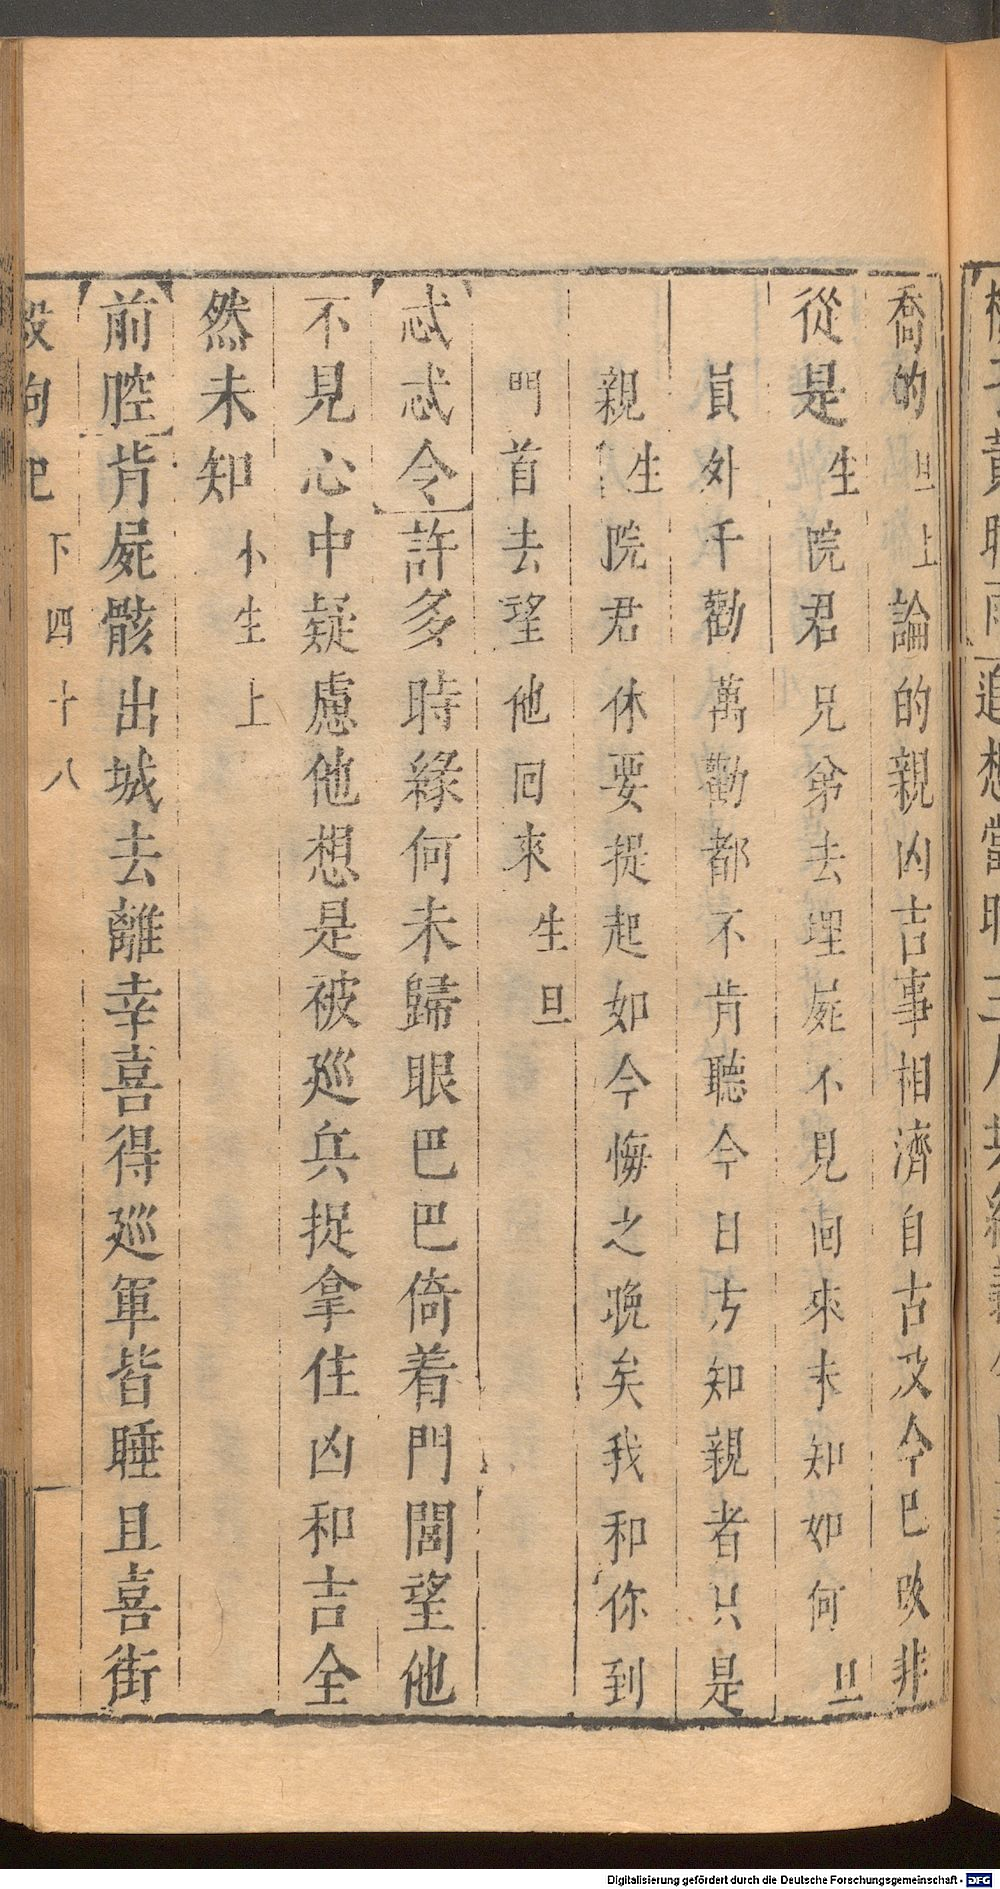 喬的旦上論的親凶吉事相濟自古及今巳改非
從是生院君兄弟去埋屍不見回來未知如何旦
員外千勸萬勸都不肯聽今日方知親者只是
親生院君休要提起如今悔之晚矣我和你到
門首去望他回來生旦
忒忒令許多時緣何未歸眼巴巴倚着門閭望他
不見心中疑慮他想是被廵兵捉拿住凶和吉全
然未知小生上
前腔肯屍骸出城去離幸喜得廵軍皆睡且喜街
殺狗記
下四十八
Digitalisierung gefördert durch die Deutsche Forschungsgemeinschaft - DFG